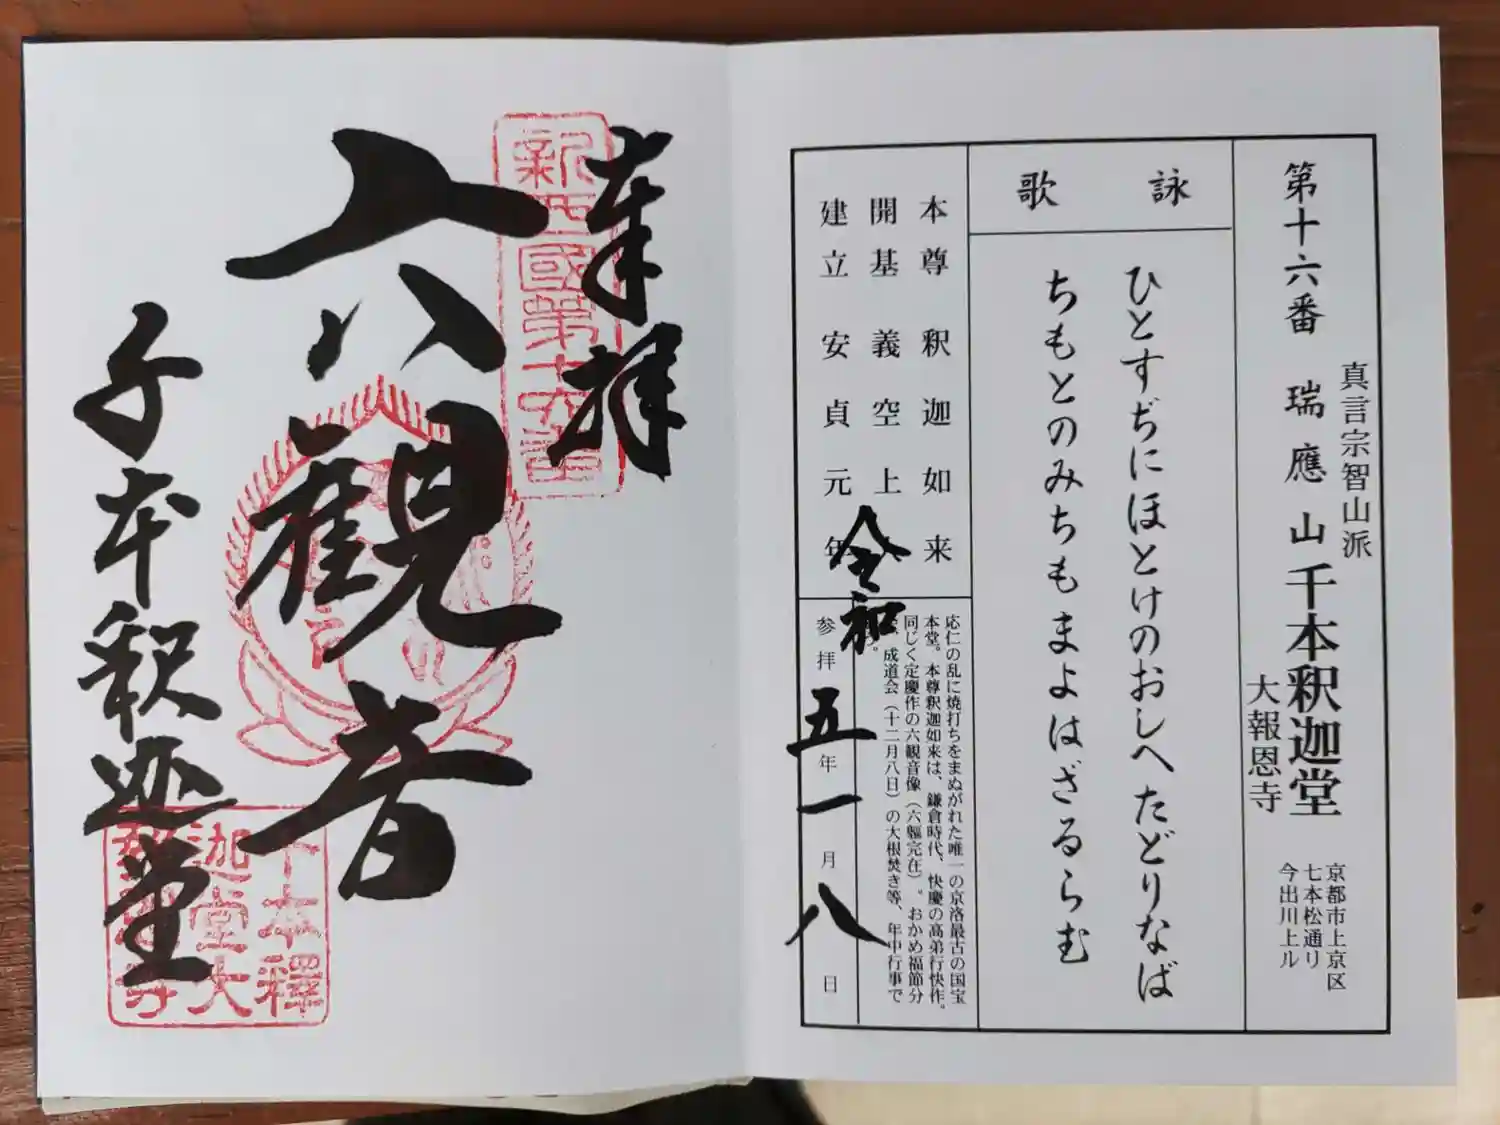 第十六番 瑞應山千本釈迦堂
真言宗智山派
大報恩寺
京都市上京区
七本松通リ
今出川上ル
詠歌
ひとすぢにほとけのおしへたどりなば
ちもとのみちもまよはざるらむ
本尊 釈迦如来
開基 義空上
建立 安貞元年
応仁の乱に焼打ちをまぬがれた唯一の京洛最古の国宝
本堂。本尊釈迦如来は、鎌倉時代、快慶の高弟行快作。
同じく定慶作の六観音像（六軀完在）。おかめ福節分
成道会（十二月八日）の大根焚き等、年中行事で
。
参拝 令和五年一月八日
奉拝
新西國第十六番
六観音
千本釈迦堂
千本釋
迦堂大